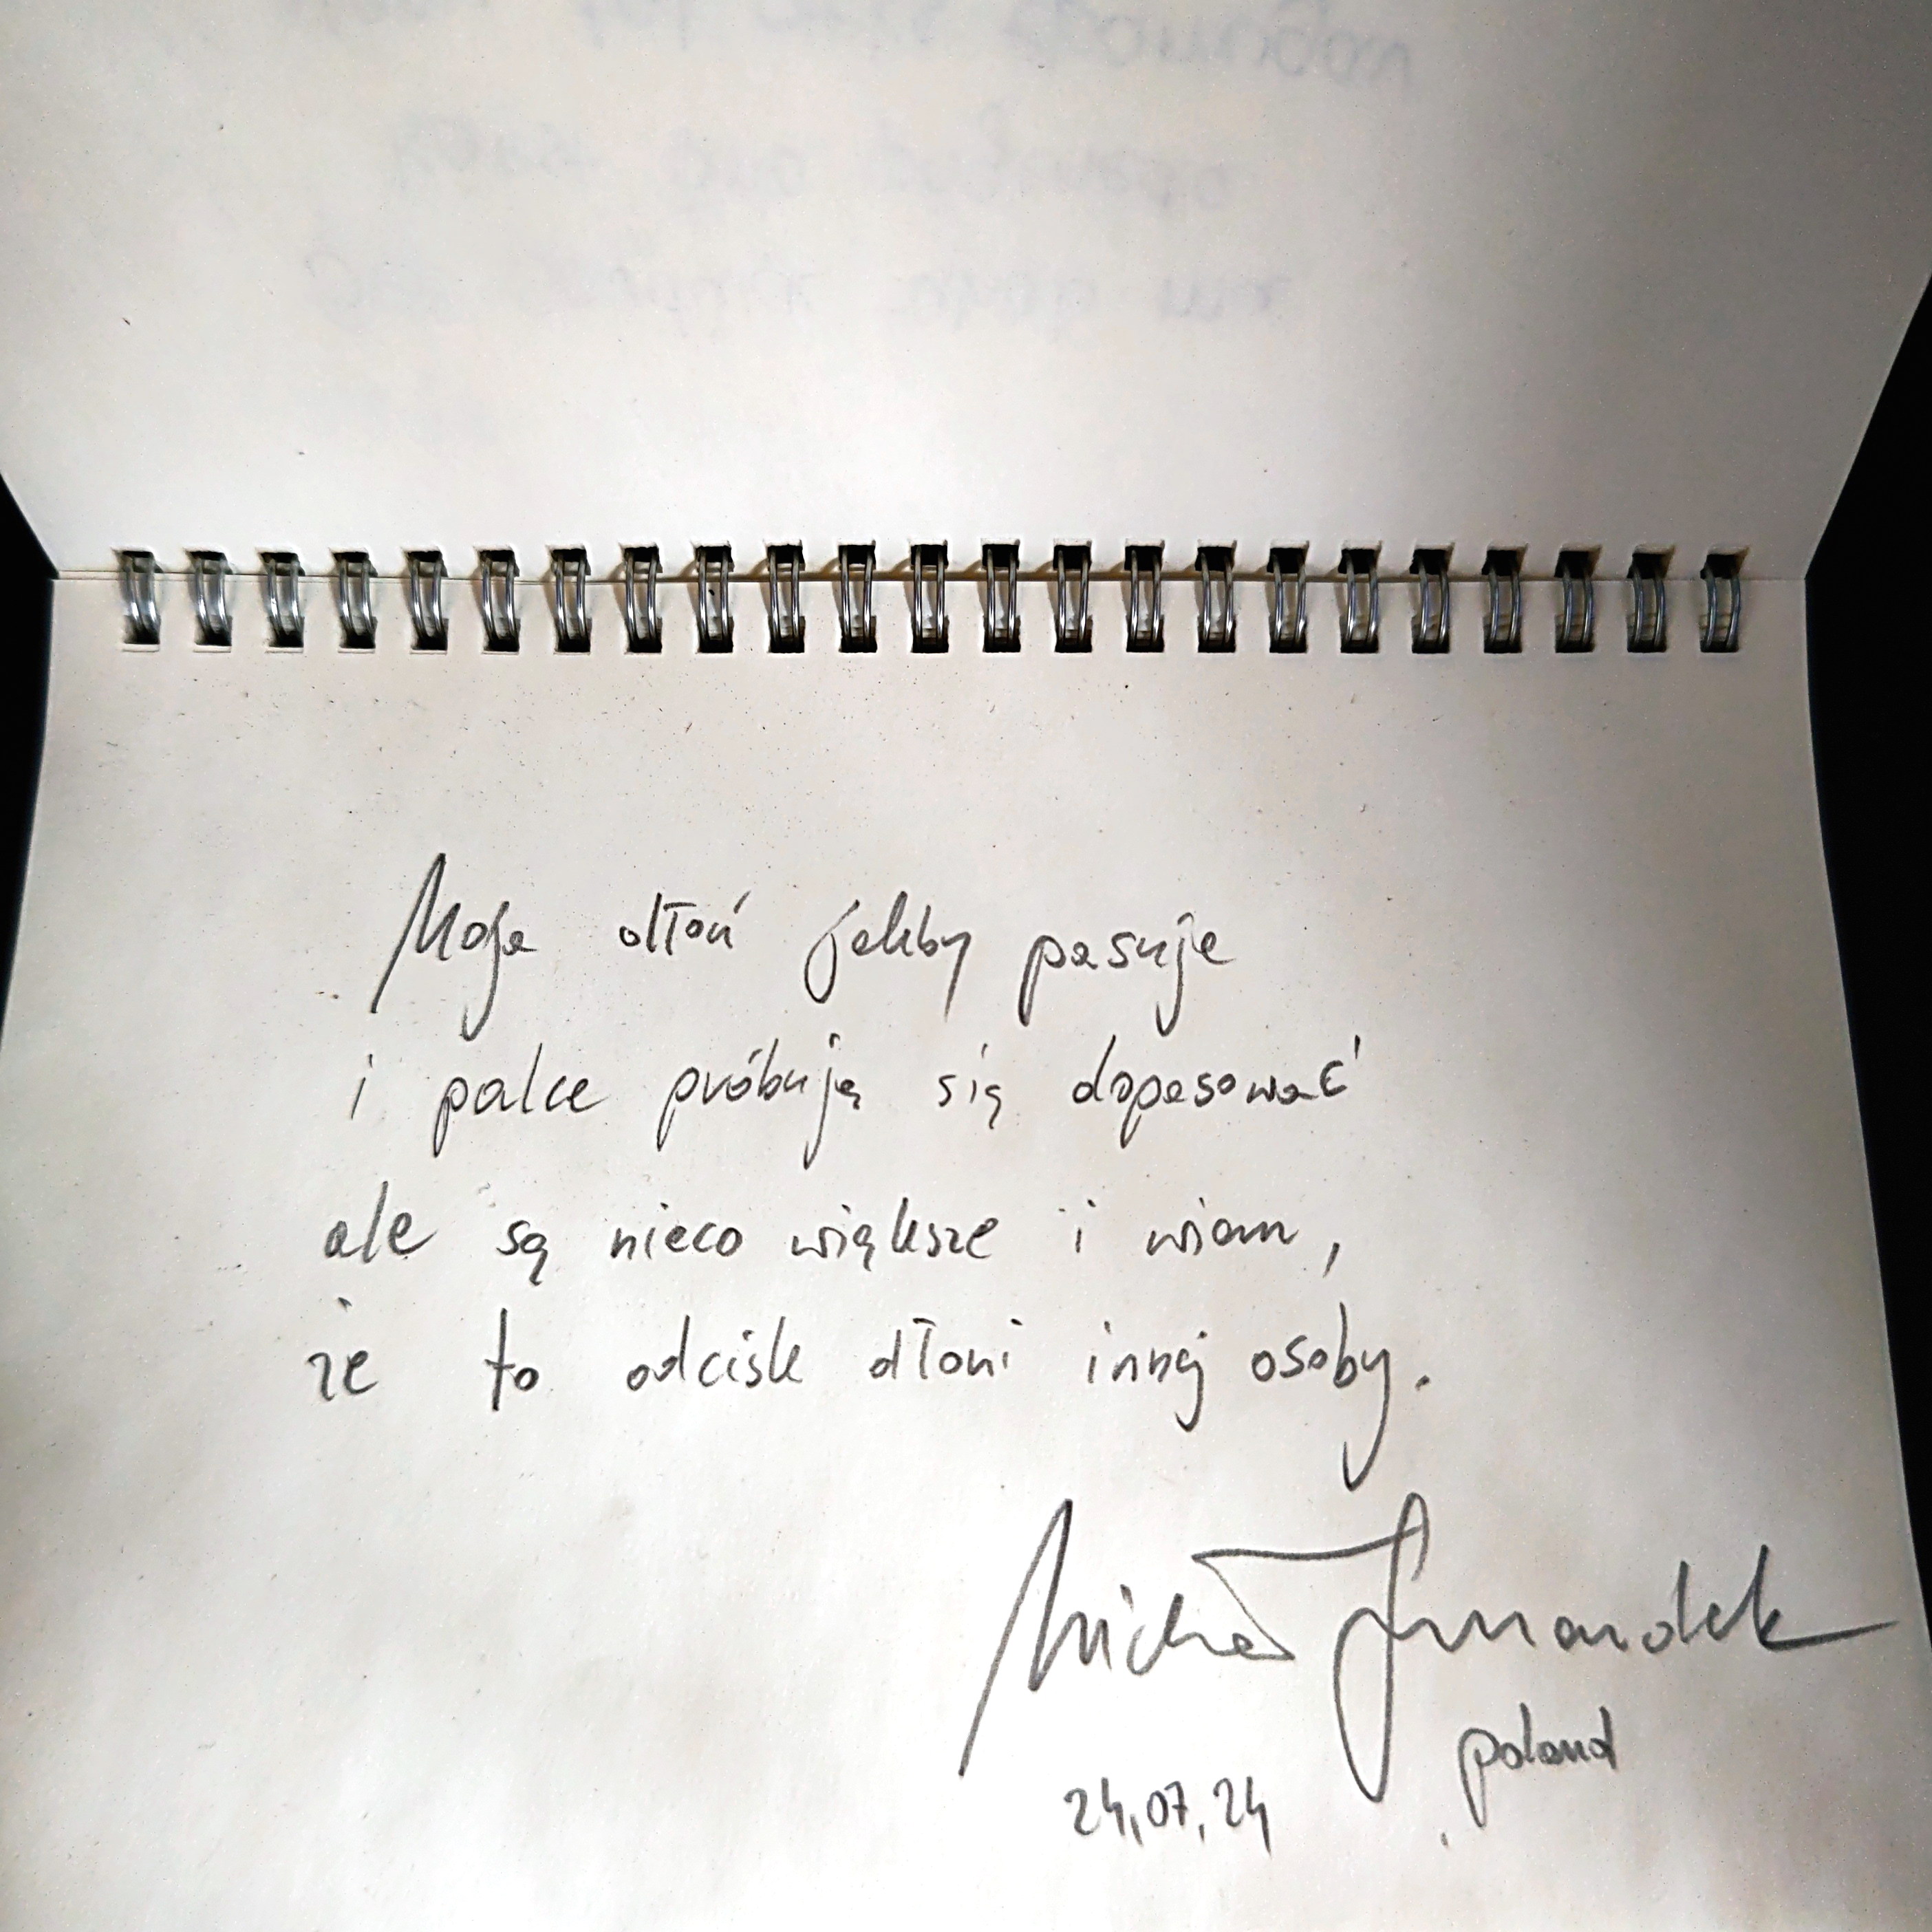 Moja dłoń jakby pasuje
i palce próbują się dopasować
ale są nieco większe i wiem,
że to odcisk dłoni innej osoby.
Michał
24.07.24 poland